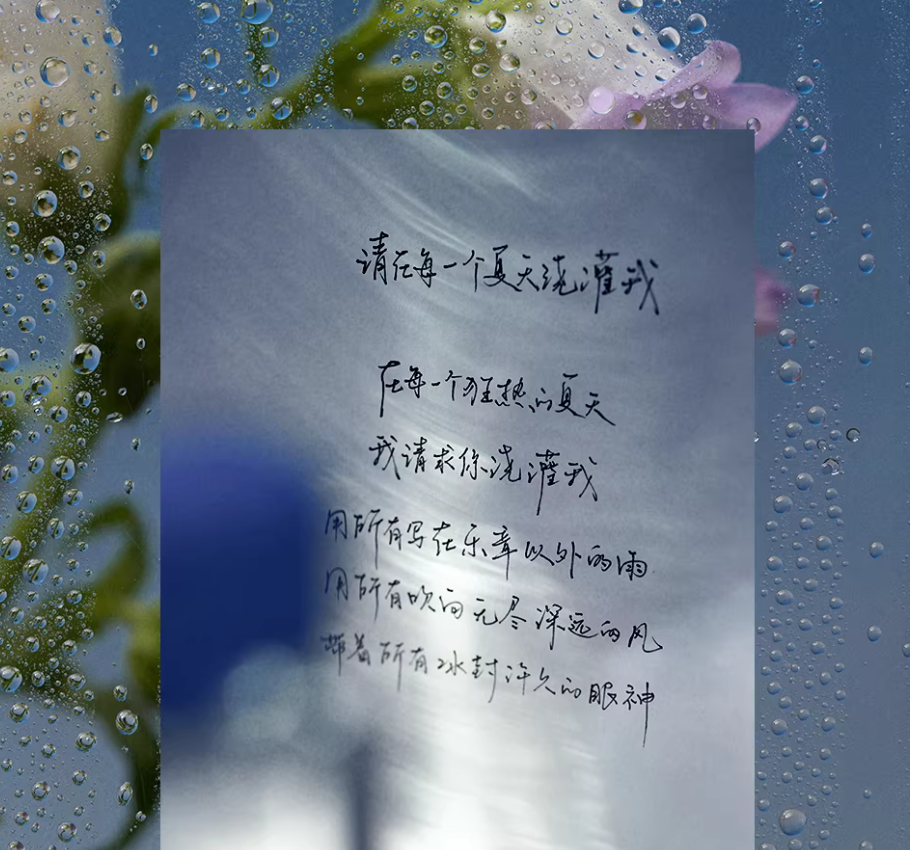 请在每一个夏天浇灌我
在每一个狂热的夏天
我请求你浇灌我
用所有写在乐章以外的雨
用所有吹向无尽深远的风
带着所有冰封许久的眼神